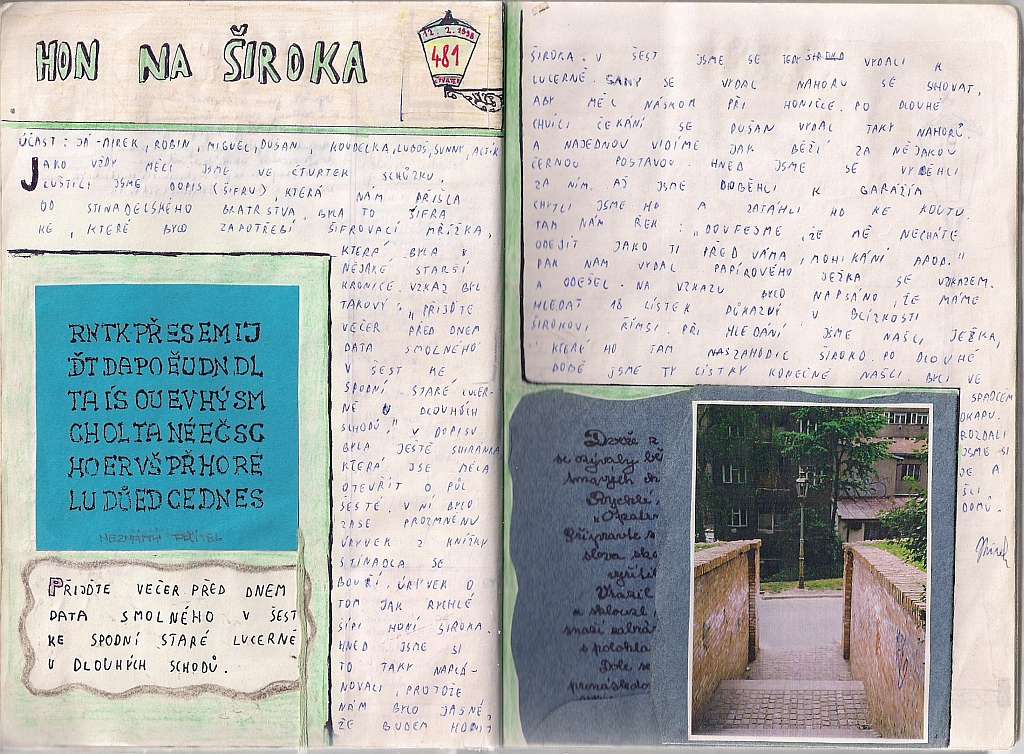 HON NA ŠIROKA
12.2.1998
481
ČTVRTEK
ÚČAST: JÁ-MIREK, ROBIN, MIGUEL, DUŠAN, KOUDELKA, LUBOŠ, SUNNY,
JAKO VŽDY MĚLI JSME VE ČTVRTEK SCHŮZKU.
LUŠTILI JSME DOPIS (ŠIFRU), KTERÁ NÁM PŘIŠLA
OD STINADELSKÉHO BRATRSTVA. BYLA TO ŠIFRA
KE, KTERÉ BYLO ZAPOTŘEBÍ ŠIFROVACÍ MŘÍŽKA,
KTERÁ BYLA V
NĚJAKÉ STARŠÍ
KRONICE. VZKAZ BYL
TAKOVÝ: „PŘIJĎTE
VEČER PŘED DNEM
DATA SMOLNÉHO
V ŠEST KE
SPODNÍ STARÉ LUCER-
NĚ U DLOUHÝCH
SCHODŮ." V DOPISU
BYLA JEŠTĚ
KTERÁ JSE MĚLA
OTEVŘÍT O PŮL
ŠESTÉ. V NÍ BYLO
ZASE PROZMĚNU
ÚRYVEK Z KNÍŽKY
STÍNADLA SE
BOUŘÍ. ÚRYVEK O
TOM JAK RYCHLÉ
ŠÍPY HONÍ ŠIROKA.
HNED JSME SI
TO TAKY NAPLÁ-
NOVALI, PROTOŽE
NÁM BYLO JASNÉ,
ŽE BUDEM HONIT
RNTKPŘESEMIJ
ĎTDAPOĚUDNDL
TAÍSOUEVHÝSM
CHOLTANÉEČSC
HOERVŠPŘHORE
LUDŮEDCEDNES
PŘIJĎTE VEČER PŘED DNEM
DATA SMOLNÉHO V ŠEST
KE SPODNÍ STARÉ LUCERNĚ
U DLOUHÝCH SCHODŮ.
ŠIROKA. V ŠEST JSME SE TEDY VYDALI K
LUCERNĚ. SANY SE VYDAL NAHORU SE SHOVAT,
ABY MĚL NÁSKOK PŘI HONIČCE. PO DLOUHÉ
CHVÍLI ČEKÁNÍ SE DUŠAN VYDAL TAKY NAHORŮ.
A NAJEDNOU VIDÍME JAK BĚŽÍ ZA NĚJAKOU
ČERNOU POSTAVOU. HNED JSME SE VYBĚHLI
ZA NÍM. AŽ JSME DOBĚHLI K GARÁŽÍM
CHYTLI JSME HO A ZATÁHLI HO KE KOUTU.
TAM NÁM ŘEK: „DOUFEJME, ŽE MĚ NECHÁTE
ODEJÍT JAKO TI PŘED VÁMA, MOHIKÁNI APOD."
PAK NÁM VYDAL PAPÍROVÉHO JEŽKA SE VZKAZEM.
A ODEŠEL. NA VZKAZU BYLO NAPSÁNO, ŽE MÁME
HLEDAT 18 LÍSTEK DŮKAZŮ V BLÍZKOSTI
ŠIROKOVI ŘÍMSI. PŘI HLEDÁNÍ JSME NAŠLI JEŽKA,
KTERÝ HO TAM ŠIROKO. PO DLOUHÉ
DOBĚ JSME TY LÍSTKY KONEČNĚ NAŠLI. BYLI VE
SPADLÉM
OKAPU.
ROZDALI
JSME SI
JE A
ŠLI
DOMŮ.
Mirek
Dveře z
se ozývaly
tmavých
Rychlé
Připravte s
slova
Vrazil
a sklouzl,
s polohla
Dole se
pronásledo